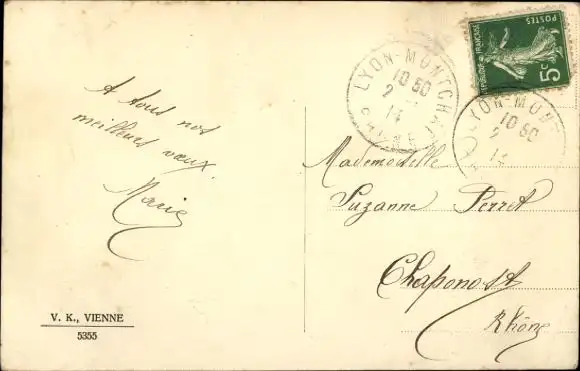 A tous nos
meilleurs vœux
Marie
V. K., VIENNE
5355
LYON-MONTCHAT
10 50
2
14
RHONE
REPUBLIQUE FRANÇAISE
POSTES
5c
LYON-MON
10 50
2
14
Mademoiselle
Suzanne Perret
Chaponost
Rhône